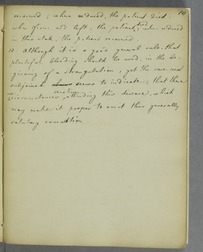 recovered; when reduced, the patient died
when firm and left, the patient, when reduced
in this state, the patient recovered
10. Although it is a good general rule, that
plentiful bleeding should be used, in the be-
ginning of a strangulation; yet the
subjoined seems to indicate, that there
circumstances attending this disease, which
may make it proper to omit this generally
salutary